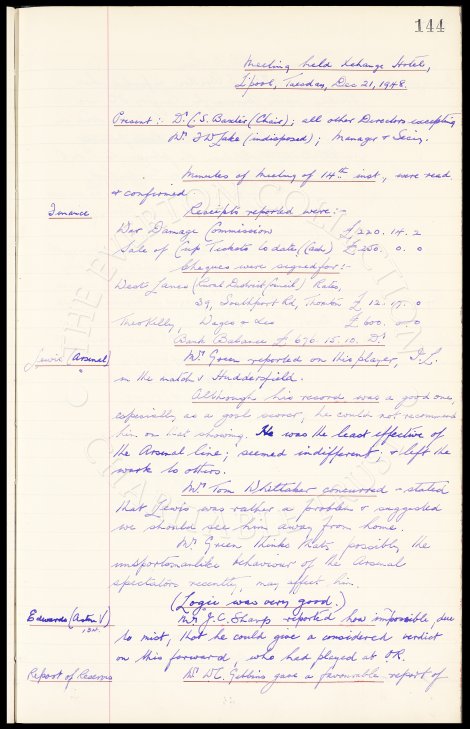 144
Meeting held Xchange Hotel,
L'pool, Tuesday, Dec 21, 1948.
Present :- Dr C.S. Baxter (Chair); all other Directors excepting
Mr (indisposed); Manager & Secy.
Minutes of Meeting of 14th inst, were read
& confirmed.
Finance
Receipts reported were :-
War Damage Commission £220. 14. 2
Sale of Cup Tickets to date, (Cash) £250. 0. 0
Cheques were signed for :-
West Lancs (Rural District Council) Rates,
39, Southport Rd, Thornton £12. 17. 0
Theo Kelly, Wages & Exs £600. 0. 0
Bank Balance £690. 15. 10. Dr
Lewis (Arsenal)
Mr Green reported on this player, I.L.
in the match v Huddersfield.
Although his record was a good one,
especially as a goal scorer, he could not recommend
him on that showing. He was the least effective of
the Arsenal line; seemed indifferent; & left the
work to others.
Mr Tom Whittaker concurred - stated
that Lewis was rather a problem & suggested
we should see him away from home.
Mr Green thinks that, possibly, the
unsportsmanlike behaviour of the Arsenal
spectators recently, may affect him.
(Logie was very good.)
Edwards (Aston V)
Mr J.C. Sharp reported how impossible, due
to mist, that he could give a considered verdict
on this forward, who had played at OR.
Report of Reserves
Mr W.C. Gibbins gave a favourable report of